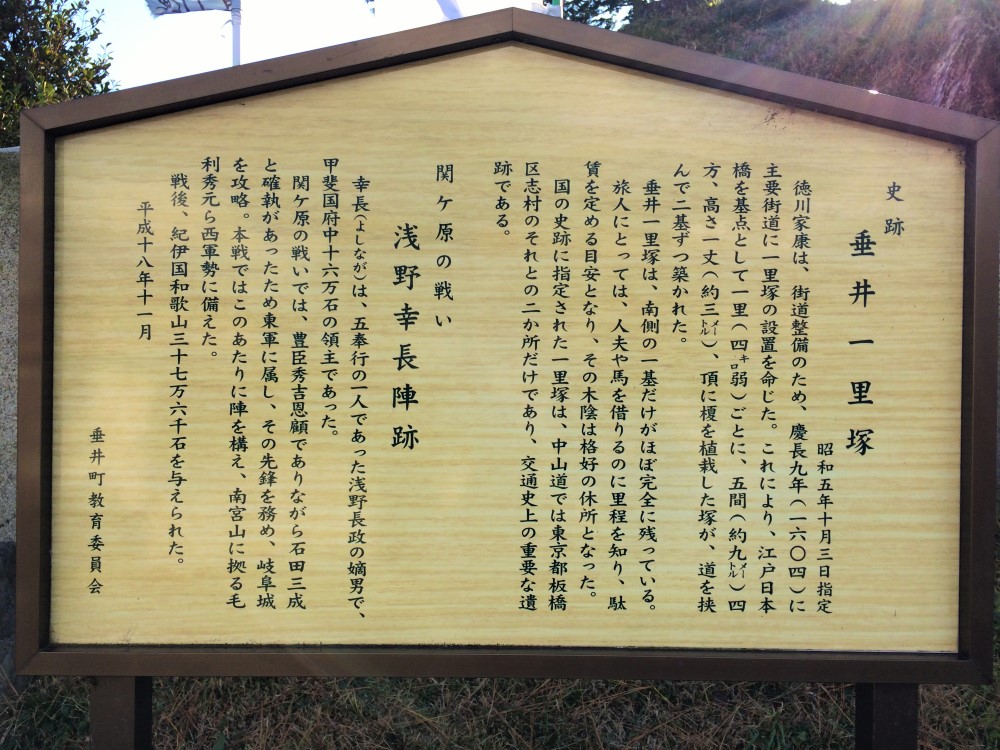 史跡
垂井一里塚
昭和五年十月三日指定
徳川家康は、街道整備のため、慶長九年(一六〇四)に
主要街道に一里塚の設置を命じた。これにより、江戸日本
橋を基点として一里(四㌔弱)ごとに、五間(約九㍍)四
方、高さ一丈(約三㍍)、頂に榎を植栽した塚が、道を挟
んで二基ずつ築かれた。
垂井一里塚は、南側の一基だけがほぼ完全に残っている。
旅人にとっては、人夫や馬を借りるのに里程を知り、駄
賃を定める目安となり、その木陰は格好の休所となった。
国の史跡に指定された一里塚は、中山道では東京都板橋
区志村のそれとの二か所だけであり、交通史上の重要な遺
跡である。
関ケ原の戦い
浅野幸長陣跡
幸長(よしなが)は、五奉行の一人であった浅野長政の嫡男で、
甲斐国府中十六万石の領主であった。
関ケ原の戦いでは、豊臣秀吉恩顧でありながら石田三成
と確執があったため東軍に属し、その先鋒を務め、岐阜城
を攻略。本戦ではこのあたりに陣を構え、南宮山に拠る毛
利秀元ら西軍勢に備えた。
戦後、紀伊国和歌山三十七万六千石を与えられた。
平成十八年十一月
垂井町教育委員会